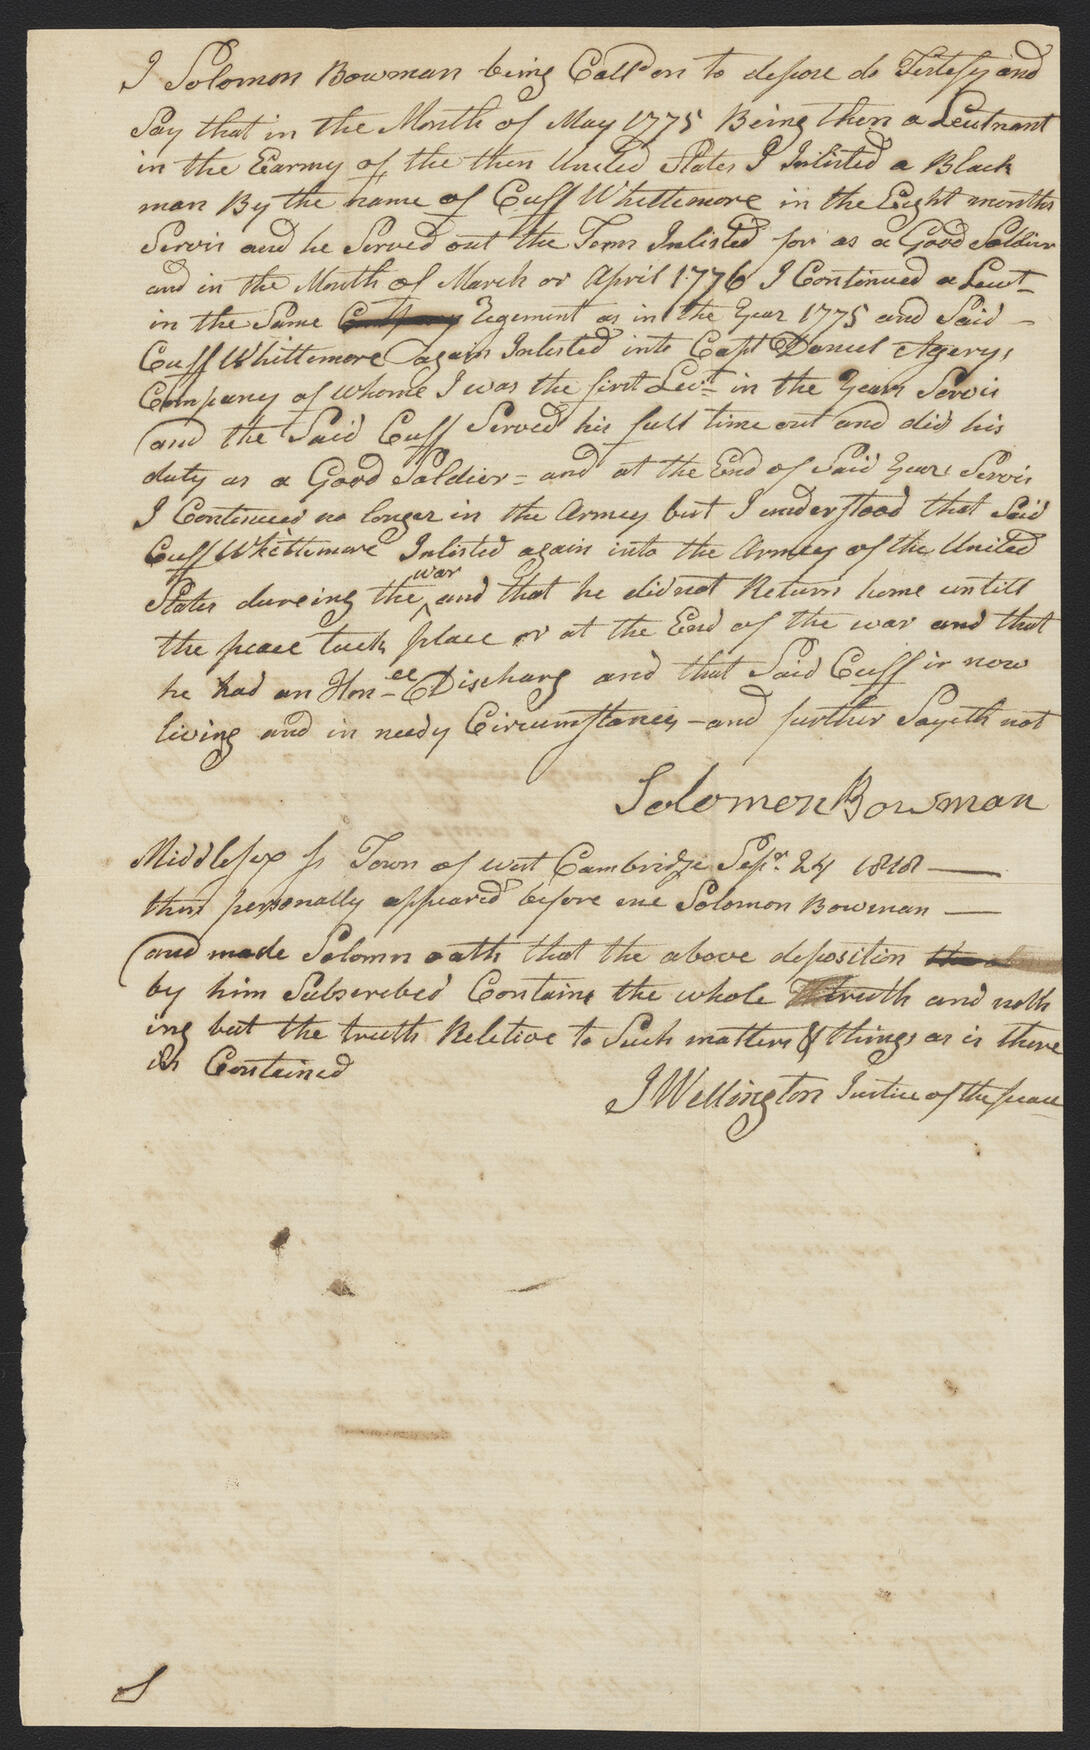 I Solomon Bowman being Calld on to depose do Testefy and
Say that in the Month of May 1775 Being then a Leutnant
in the Earmy of the then United States I Inlisted a Black
man By the name of Cuff Whittemore in the Eight months
Servis and he Served out the Term Inlisted for as a Good Soldier
and in the Month of March or April 1776 I Continued a Leut
in the Same Company Regement as in the Year 1775 and Said
Cuff Whittemore again Inlisted into Capt Daniel Egerys
Company of Whome I was the first Leut in the Years Servis
and the Said Cuff Served his full time out and did his
duty as a Good Soldier = and at the End of Said Years Servis
I Continued no longer in the Armey but I understood that Said
Cuff Whittemore Inlisted again into the Armey of the United
States dureing the war and that he did not Return home untill
the peace tuck place or at the End of the war and that
he had an Hon-ee Discharg and that Said Cuff is now
living and in needy Circumstances - and further Sayeth not
Solomon Bowman
Middlesex Ss Town of west Cambridge Sepr. 24 1818
then personally appeared before me Solomon Bowman
and made Solomn oath that the above deposition
by him Subscrebed Contains the whole truth and noth
ing but the truth Reletive to Such matters & things as is there
in Contained
J Wellington Justice of the peace